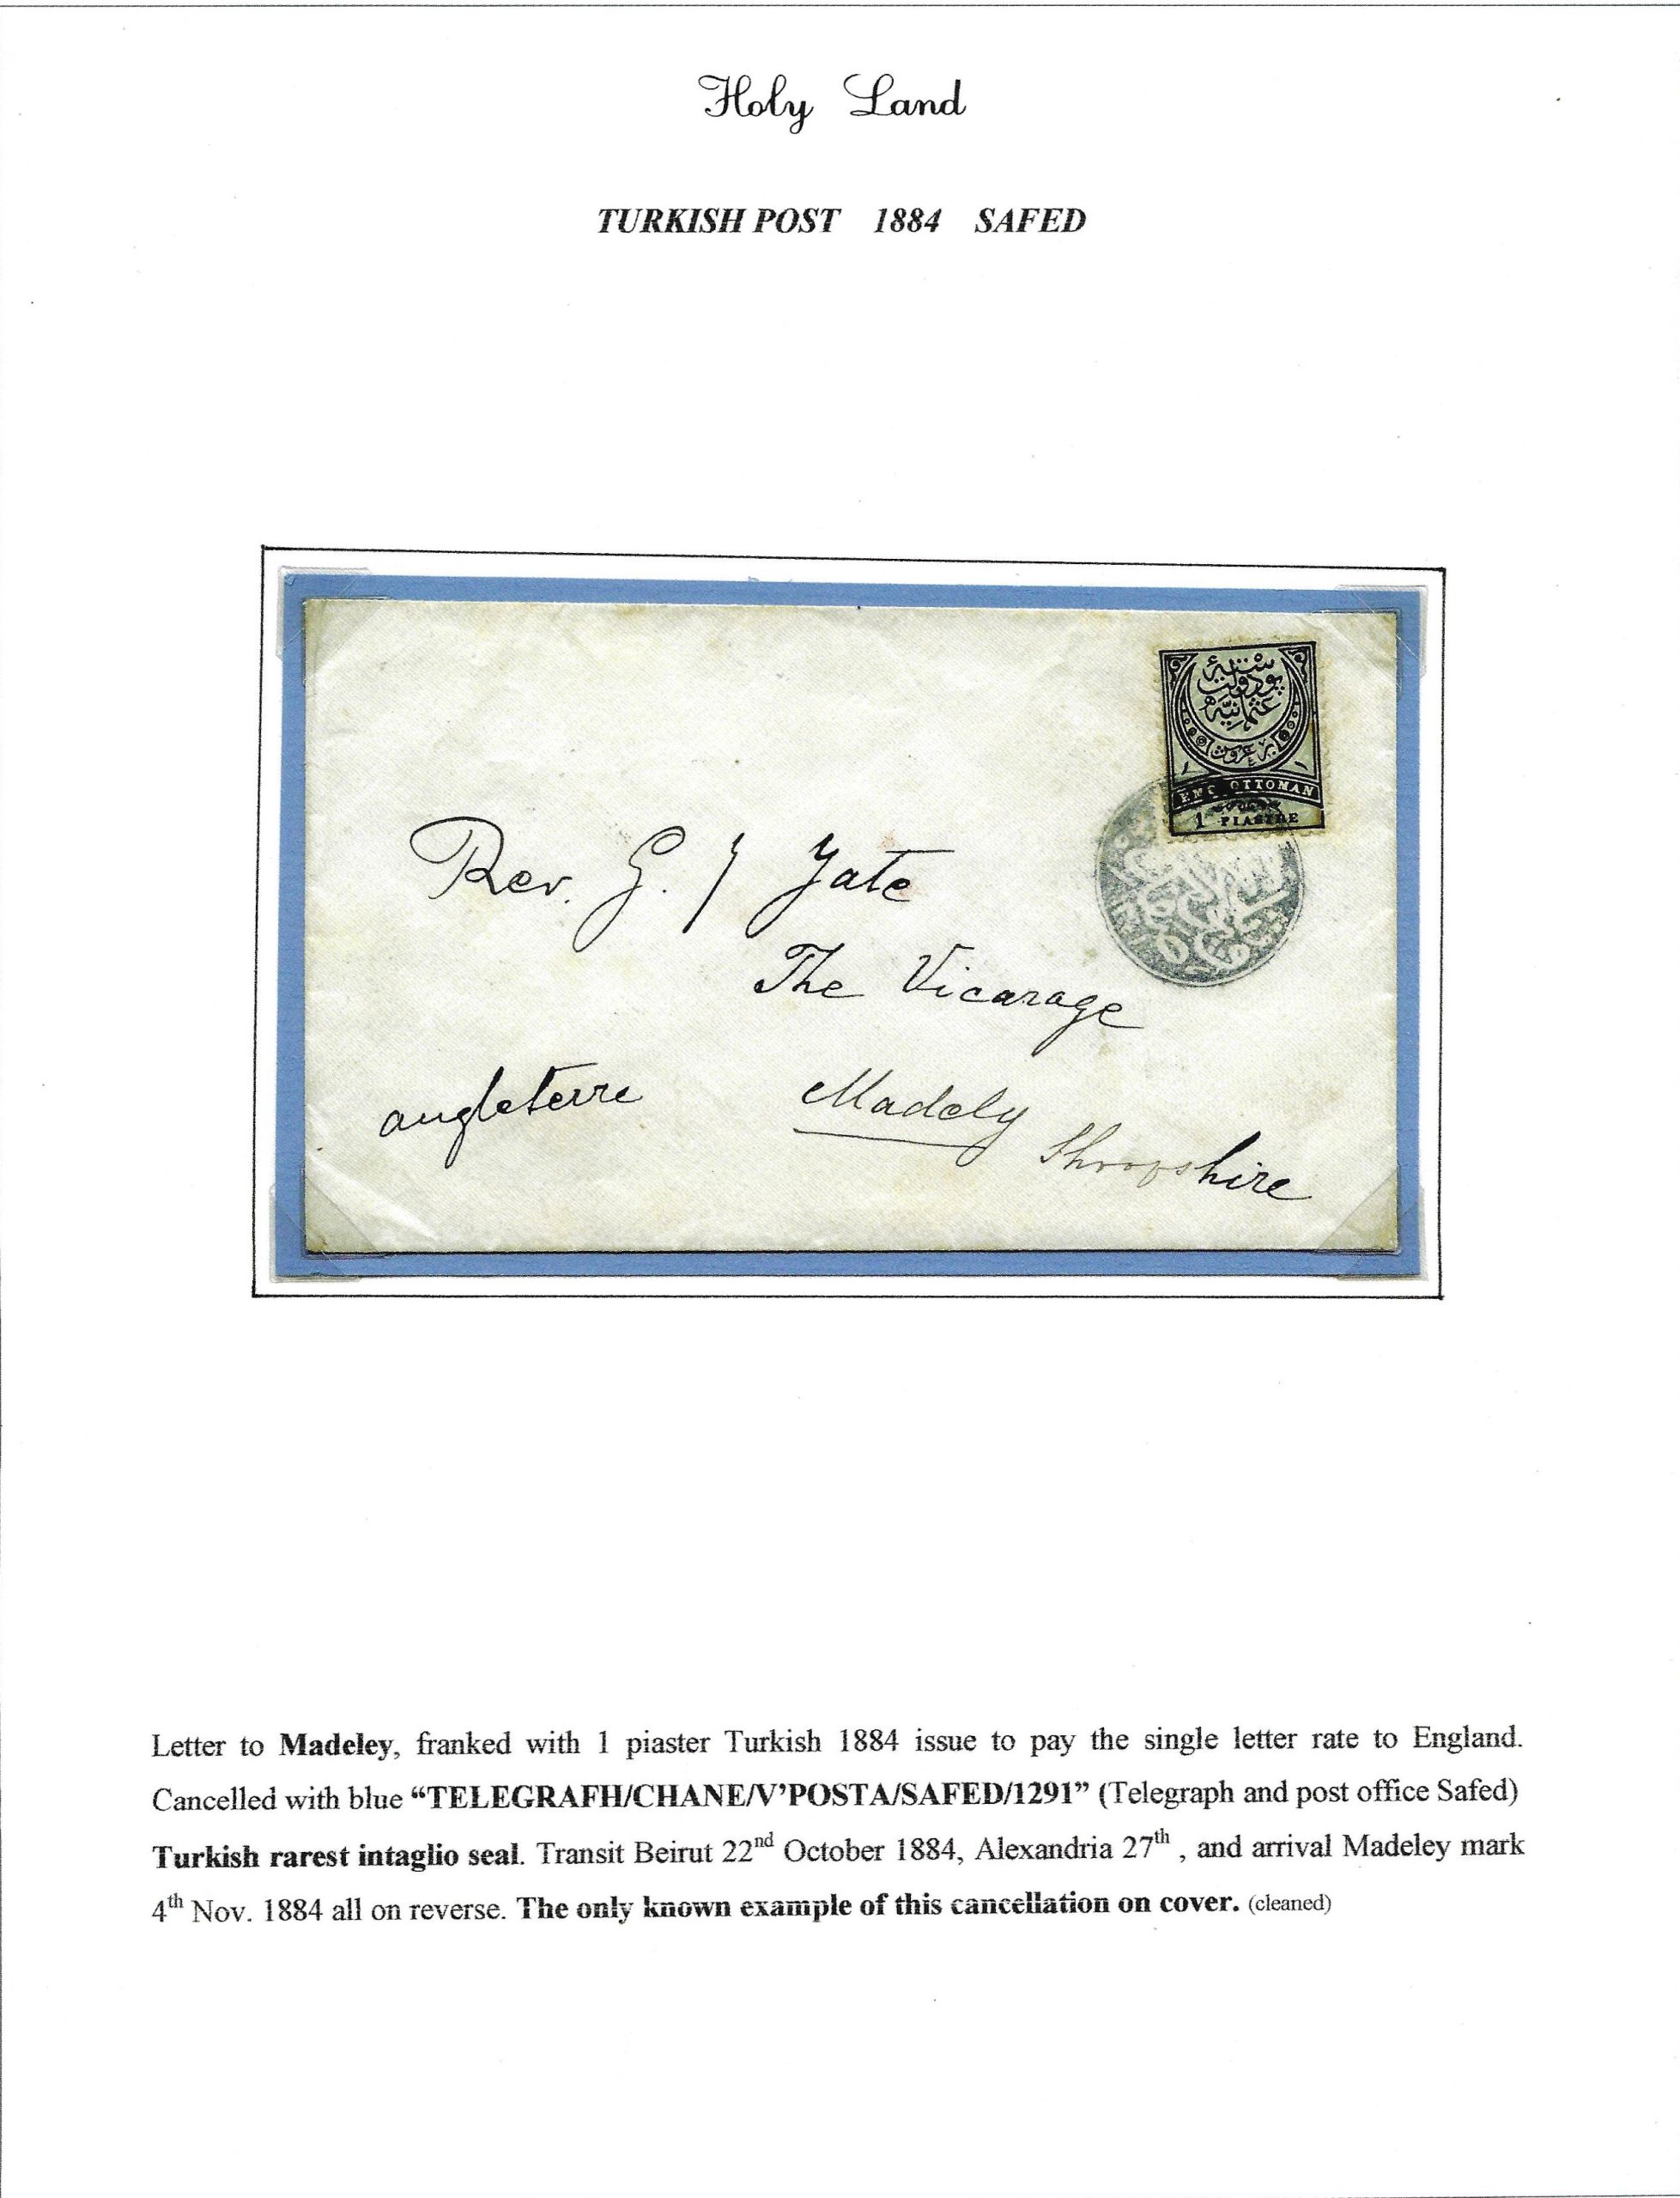 Holy Land
TURKISH POST 1884 SAFED
پوسته
دولت
عثمانیه
بر غروش
١ ١
EMP. OTTOMAN
1 PIASTRE
Rev. G. / Yate
The Vicarage
angleterre Madely
Shropshire
Letter to Madeley, franked with 1 piaster Turkish 1884 issue to pay the single letter rate to England.
Cancelled with blue “TELEGRAFH/CHANE/V’POSTA/SAFED/1291” (Telegraph and post office Safed)
Turkish rarest intaglio seal. Transit Beirut 22nd October 1884, Alexandria 27th , and arrival Madeley mark
4th Nov. 1884 all on reverse. The only known example of this cancellation on cover. (cleaned)